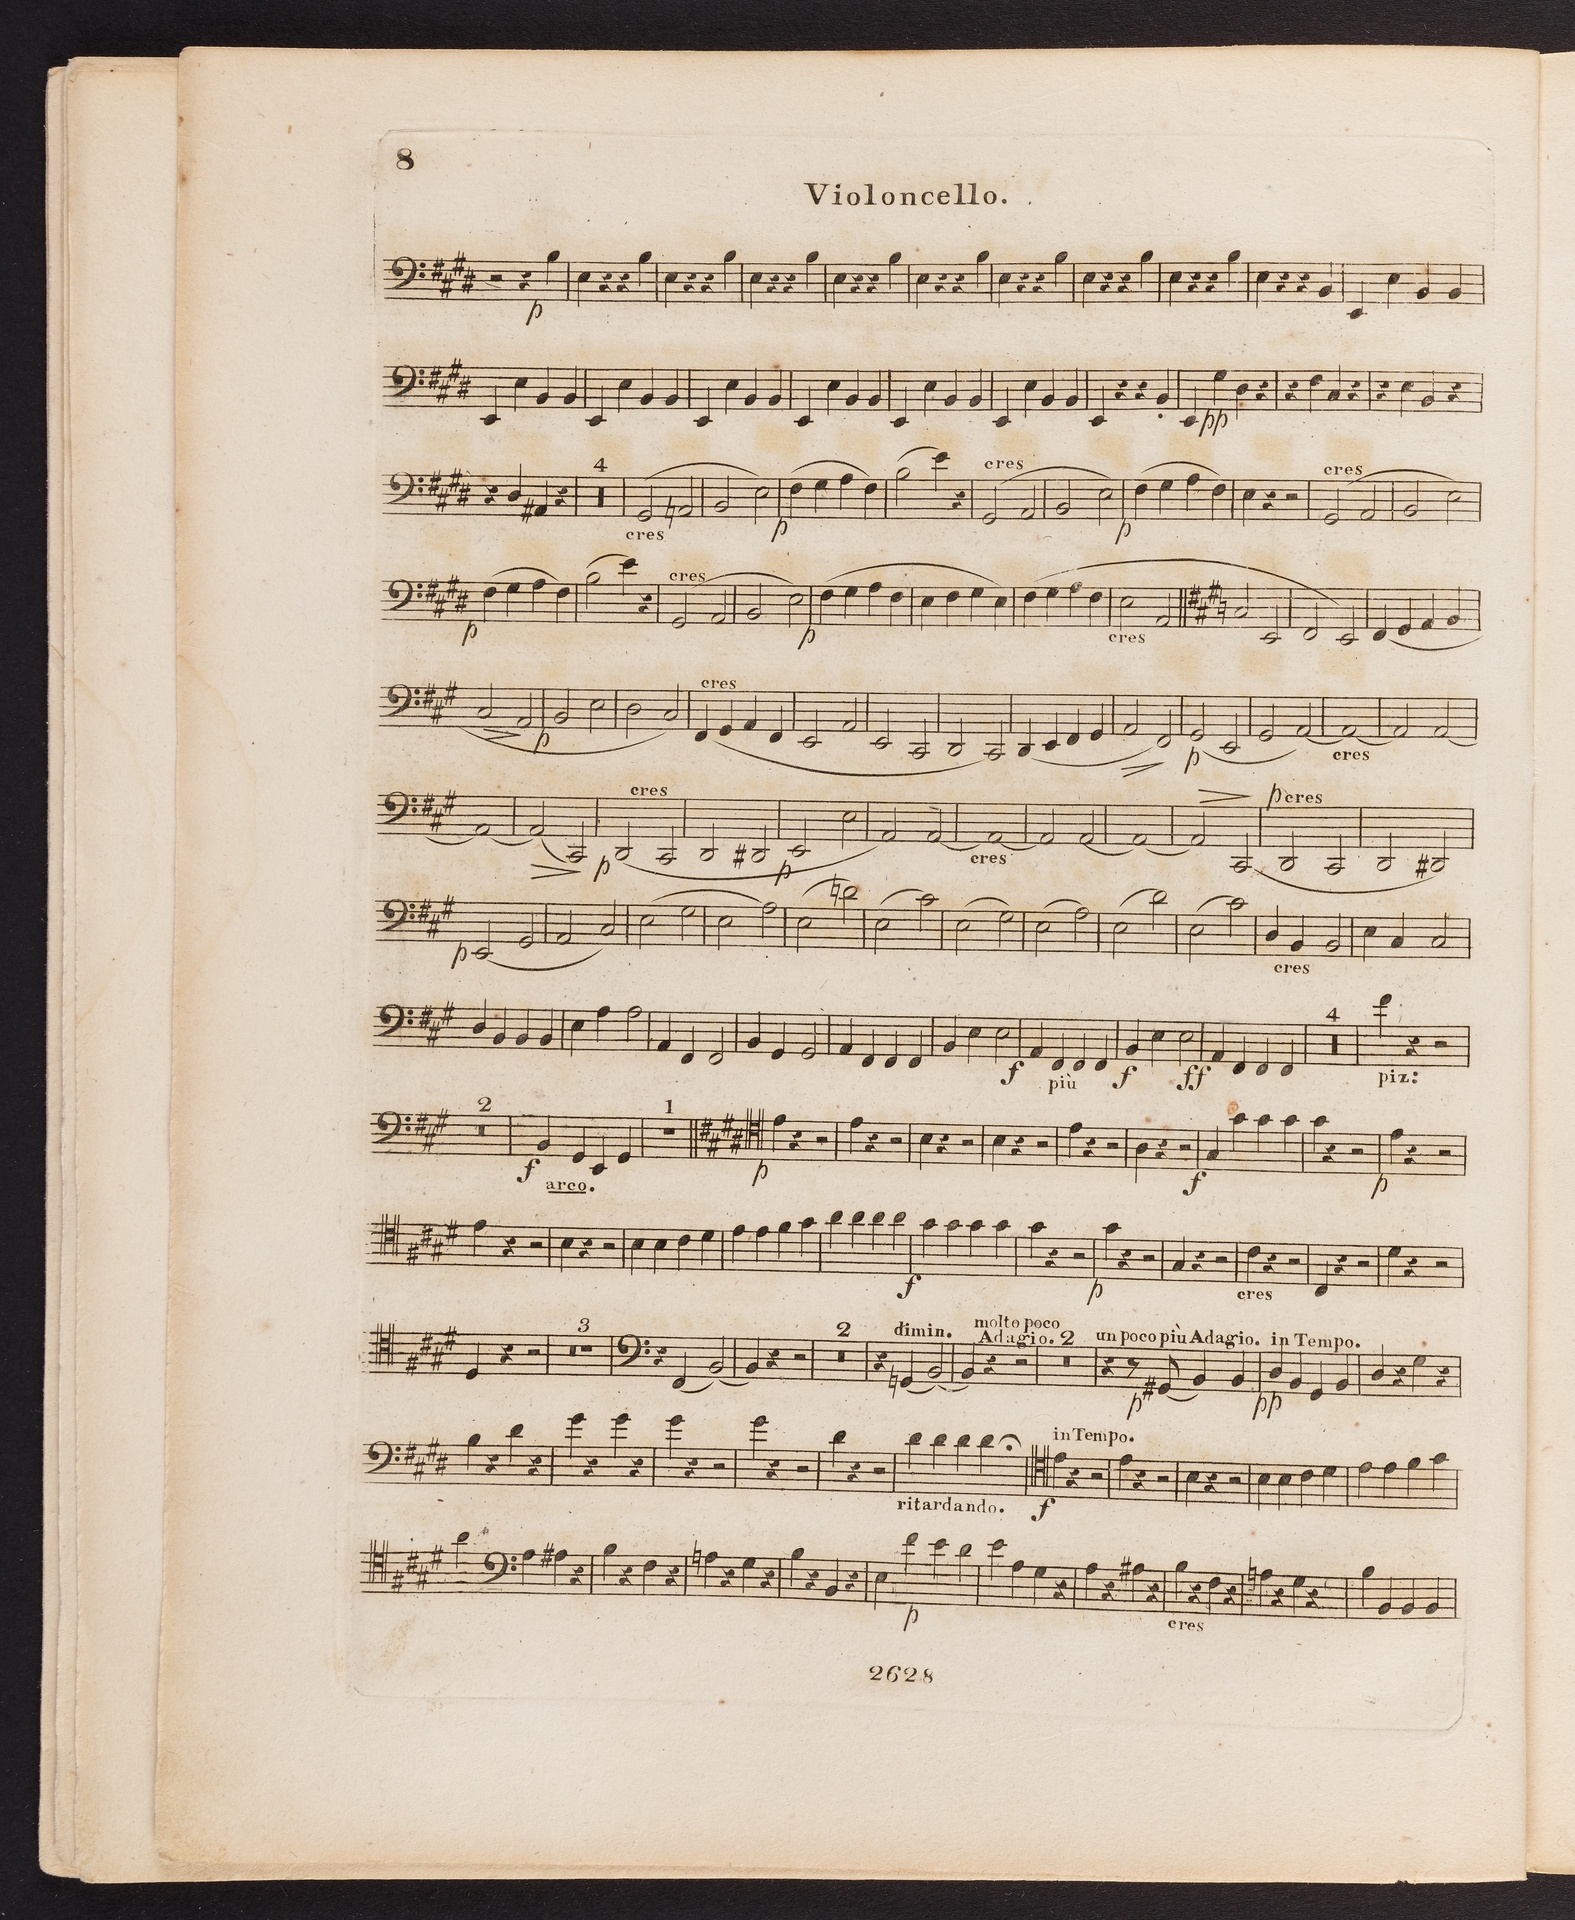 8
Violoncello.
p
pp
4
cres
cres
cres
p
p
cres
p
p
cres
cres
p
p
cres
cres
p
p
cres
cres
p cres
p
cres
4
f
più
f
ff
piz:
2
1
f
arco.
p
f
p
f
p
cres
3
2
dimin.
molto poco
Adagio. 2
un poco più Adagio.
in Tempo.
p
pp
in Tempo.
ritardando.
f
p
cres
2628